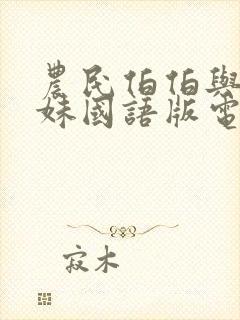 農民伯伯與
妹國語版電
寂木